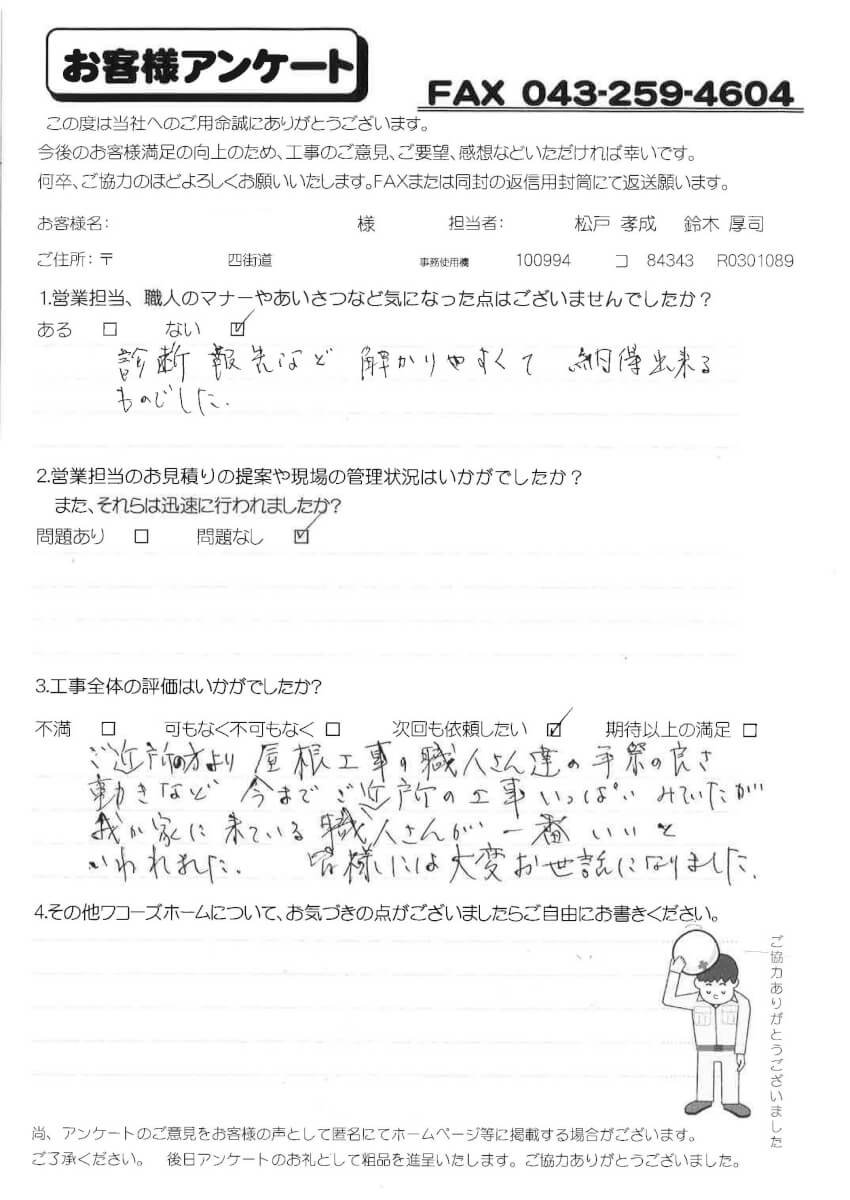 お客様アンケート
FAX 043-259-4604
この度は当社へのご用命誠にありがとうございます。
今後のお客様満足の向上のため、工事のご意見、ご要望、感想などいただければ幸いです。
何卒、ご協力のほどよろしくお願いいたします。FAXまたは同封の返信用封筒にて返送願います。
お客様名: 様 担当者: 松戸 孝成 鈴木 厚司
ご住所: 〒 四街道 事務使用欄 100994 コ 84343 R0301089
1.営業担当、職人のマナーやあいさつなど気になった点はございませんでしたか?
ある □ ない ☑
診断 報告など 解かりやすくて 納得出来る
ものでした.
2.営業担当のお見積りの提案や現場の管理状況はいかがでしたか?
また、それらは迅速に行われましたか?
問題あり □ 問題なし ☑
3.工事全体の評価はいかがでしたか?
不満 □ 可もなく不可もなく □ 次回も依頼したい ☑ 期待以上の満足 □
ご近所の方より 屋根工事の職人さん達の手際の良さ
動きなど 今までご近所の工事いっぱいみていたが
我が家に来ている職人さんが一番いいと
いわれました. 皆様には大変お世話になりました.
4.その他ワコーズホームについて、お気づきの点がございましたらご自由にお書きください。
ご協力ありがとうございました
尚、アンケートのご意見をお客様の声として匿名にてホームページ等に掲載する場合がございます。
ご了承ください。 後日アンケートのお礼として粗品を進呈いたします。ご協力ありがとうございました。